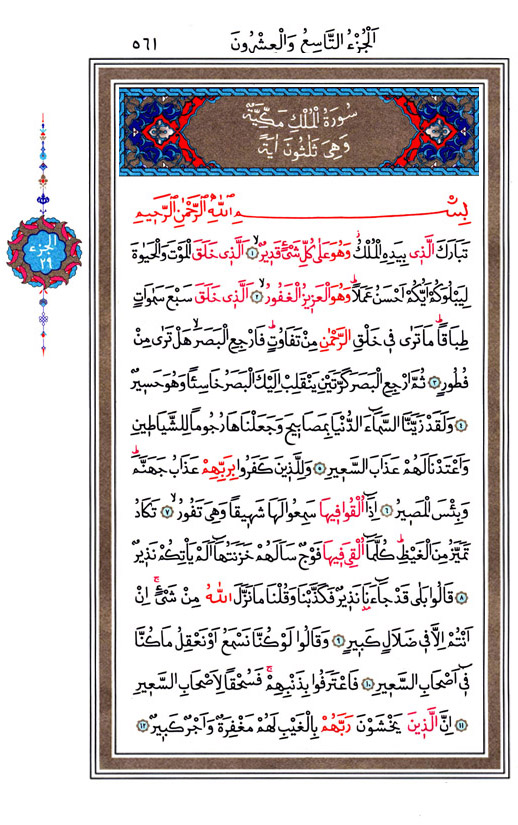 اَلْجُزْءُ التَّاسِعُ وَالْعِشْرُونَ
٥٦١
سُورَةُ الْمُلْكِ مَكِّيَّةٌ
وَهِيَ ثَلٰثُونَ اٰيَةً
الجزء
٢٩
بِسْمِ اللّٰهِ الرَّحْمٰنِ الرَّحِيمِ
تَبَارَكَ الَّذِى بِيَدِهِ الْمُلْكُۘ وَهُوَ عَلٰى كُلِّ شَىْءٍ قَدِيرٌۙ ﴿١﴾ اَلَّذِى خَلَقَ الْمَوْتَ وَالْحَيٰوةَ
لِيَبْلُوَكُمْ اَيُّكُمْ اَحْسَنُ عَمَلًاۜ وَهُوَ الْعَزِيزُ الْغَفُورُۙ ﴿٢﴾ اَلَّذِى خَلَقَ سَبْعَ سَمٰوَاتٍ
طِبَاقًاۜ مَا تَرٰى فِى خَلْقِ الرَّحْمٰنِ مِنْ تَفَاوُتٍۜ فَارْجِعِ الْبَصَرَۙ هَلْ تَرٰى مِنْ
فُطُورٍ ﴿٣﴾ ثُمَّ ارْجِعِ الْبَصَرَ كَرَّتَيْنِ يَنْقَلِبْ اِلَيْكَ الْبَصَرُ خَاسِئًا وَهُوَ حَسِيرٌ
﴿٤﴾ وَلَقَدْ زَيَّنَّا السَّمَٓاءَ الدُّنْيَا بِمَصَابِيحَ وَجَعَلْنَاهَا رُجُومًا لِلشَّيَاطِينِ
وَاَعْتَدْنَا لَهُمْ عَذَابَ السَّعِيرِ ﴿٥﴾ وَلِلَّذِينَ كَفَرُوا بِرَبِّهِمْ عَذَابُ جَهَنَّمَۜ
وَبِئْسَ الْمَصِيرُ ﴿٦﴾ اِذَٓا اُلْقُوا فِيهَا سَمِعُوا لَهَا شَهِيقًا وَهِىَ تَفُورُۙ ﴿٧﴾ تَكَادُ
تَمَيَّزُ مِنَ الْغَيْظِۜ كُلَّمَٓا اُلْقِىَ فِيهَا فَوْجٌ سَاَلَهُمْ خَزَنَتُهَٓا اَلَمْ يَأْتِكُمْ نَذِيرٌ
﴿٨﴾ قَالُوا بَلٰى قَدْ جَٓاءَنَا نَذِيرٌ فَكَذَّبْنَا وَقُلْنَا مَا نَزَّلَ اللّٰهُ مِنْ شَىْءٍۚ اِنْ
اَنْتُمْ اِلَّا فِى ضَلَالٍ كَبِيرٍ ﴿٩﴾ وَقَالُوا لَوْ كُنَّا نَسْمَعُ اَوْ نَعْقِلُ مَا كُنَّا
فِٓى اَصْحَابِ السَّعِيرِ ﴿١٠﴾ فَاعْتَرَفُوا بِذَنْبِهِمْۚ فَسُحْقًا لِاَصْحَابِ السَّعِيرِ
﴿١١﴾ اِنَّ الَّذِينَ يَخْشَوْنَ رَبَّهُمْ بِالْغَيْبِ لَهُمْ مَغْفِرَةٌ وَاَجْرٌ كَبِيرٌ ﴿١٢﴾